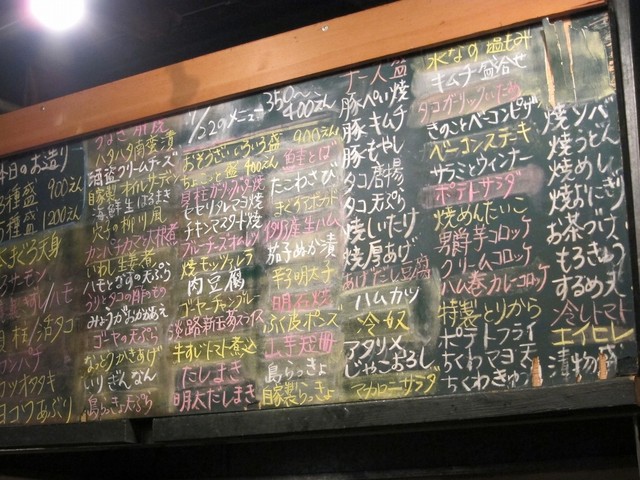 本日のお造り
3種盛 900えん
5種盛 1200えん
活タコ
カツオタタキ
ヨコワあぶり
ハタハタ南蛮漬
酒盗クリームチーズ
自家製オイルサーデン
海鮮生ほるまき
穴子の柳川風
いわし生姜煮
ハモとなすの天ぷら
みょうが甘酢漬え
ゴーヤの天ぷら
なっとうかきあげ
いりぎんなん
島らっきょ天ぷら
1/220メニュー 350〜400えん
おそうざいいろいろ盛 900えん
ちょこっと盛 400えん
貝柱ガーリック焼
モモセリタルマヨ焼
チキンマスタード焼
ブルーチーズオムレツ
焼モッツァレラ
肉豆腐
ゴーヤーチャンプルー
淡路新玉葱スライス
牛すじトマト煮込
だしまき
明太だしまき
鮭とば
たこわさび
まぐろナゲット
切り落し生ハム
茄子ぬか漬
辛子明太子
明石焼
ぶた皮ポンズ
山芋短冊
島らっきょ
自家製らっきょ
一人盆
豚ぺい焼
豚キムチ
豚もやし
タコ唐揚
タコ天ぷら
焼しいたけ
焼厚あげ
あげだし豆腐
ハムカツ
冷奴
アタリメ
じゃこおろし
マカロニーサラダ
水なす塩もみ
キムチ盛合せ
タコガーリックいため
きのことベーコンピザ
ベーコンステーキ
サラミとウィンナー
ポテトサラダ
焼めんたいこ
男爵芋コロッケ
クリームコロッケ
ハム巻カレーコロッケ
特製とりから
ポテトフライ
ちくわマヨ天
ちくわきゅう
焼ソバ
焼うどん
焼めし
焼おにぎり
お茶づけ
もろきゅう
するめ天
冷しトマト
エイヒレ
漬物盛